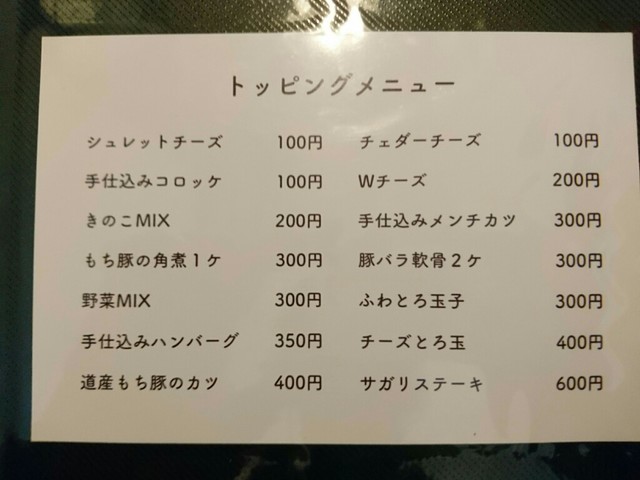 トッピングメニュー
シュレットチーズ 100円 チェダーチーズ 100円
手仕込みコロッケ 100円 Wチーズ 200円
きのこMIX 200円 手仕込みメンチカツ 300円
もち豚の角煮1ケ 300円 豚バラ軟骨2ケ 300円
野菜MIX 300円 ふわとろ玉子 300円
手仕込みハンバーグ 350円 チーズとろ玉 400円
道産もち豚のカツ 400円 サガリステーキ 600円